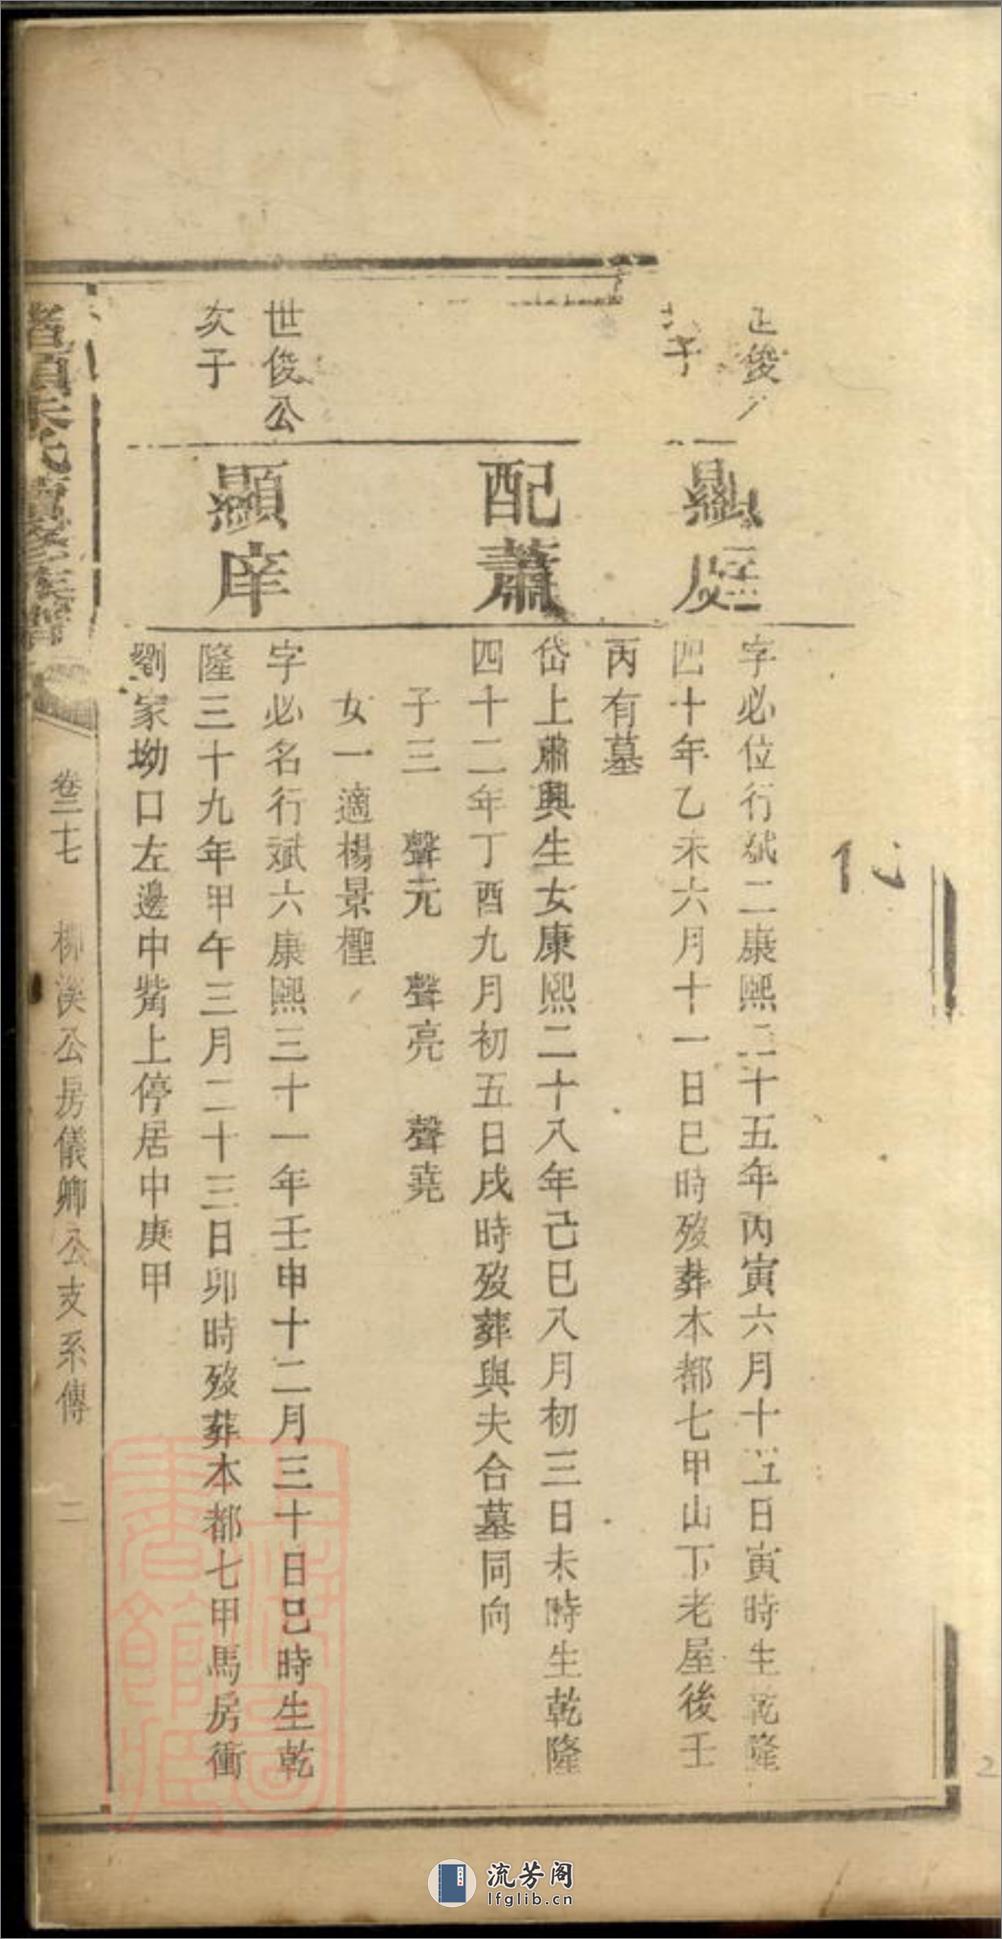 俊
子
顯庭
字必位行斌二康熙二十五年丙寅六月十五日寅時生乾隆
四十年乙未六月十一日巳時歿葬本都七甲山下老屋後壬
丙有墓
配蕭
岱上蕭興生女康熙二十八年己巳八月初三日未時生乾隆
四十二年丁酉九月初五日戌時歿葬與夫合墓同向
子三 聲元 聲亮 聲堯
女一適楊景檉
世俊公
次子
顯庠
字必名行斌六康熙三十一年壬申十二月三十日巳時生乾
隆三十九年甲午三月二十三日卯時歿葬本都七甲馬房衝
劉家坳口左邊中觜上停居中庚甲
卷二七 柳溪公房儀卿公支系傳 二
上海圖書館藏
流芳阁
lfglib.cn